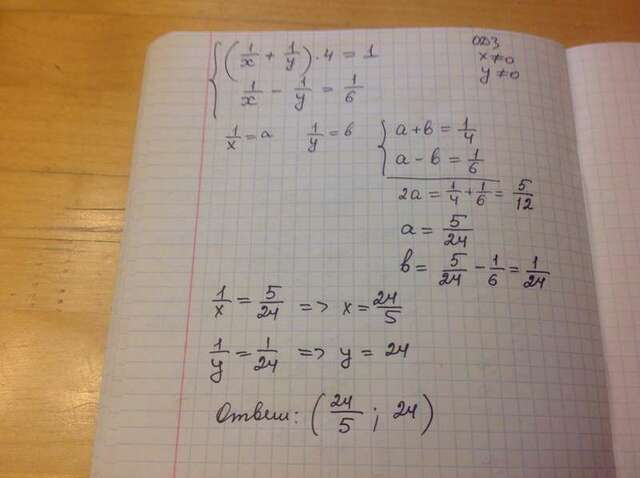 (1/x + 1/y) · 4 = 1
1/x - 1/y = 1/6
ОДЗ
x ≠ 0
y ≠ 0
1/x = a 1/y = b
a + b = 1/4
a - b = 1/6
2a = 1/4 + 1/6 = 5/12
a = 5/24
b = 5/24 - 1/6 = 1/24
1/x = 5/24 => x = 24/5
1/y = 1/24 => y = 24
Ответ: (24/5 ; 24)